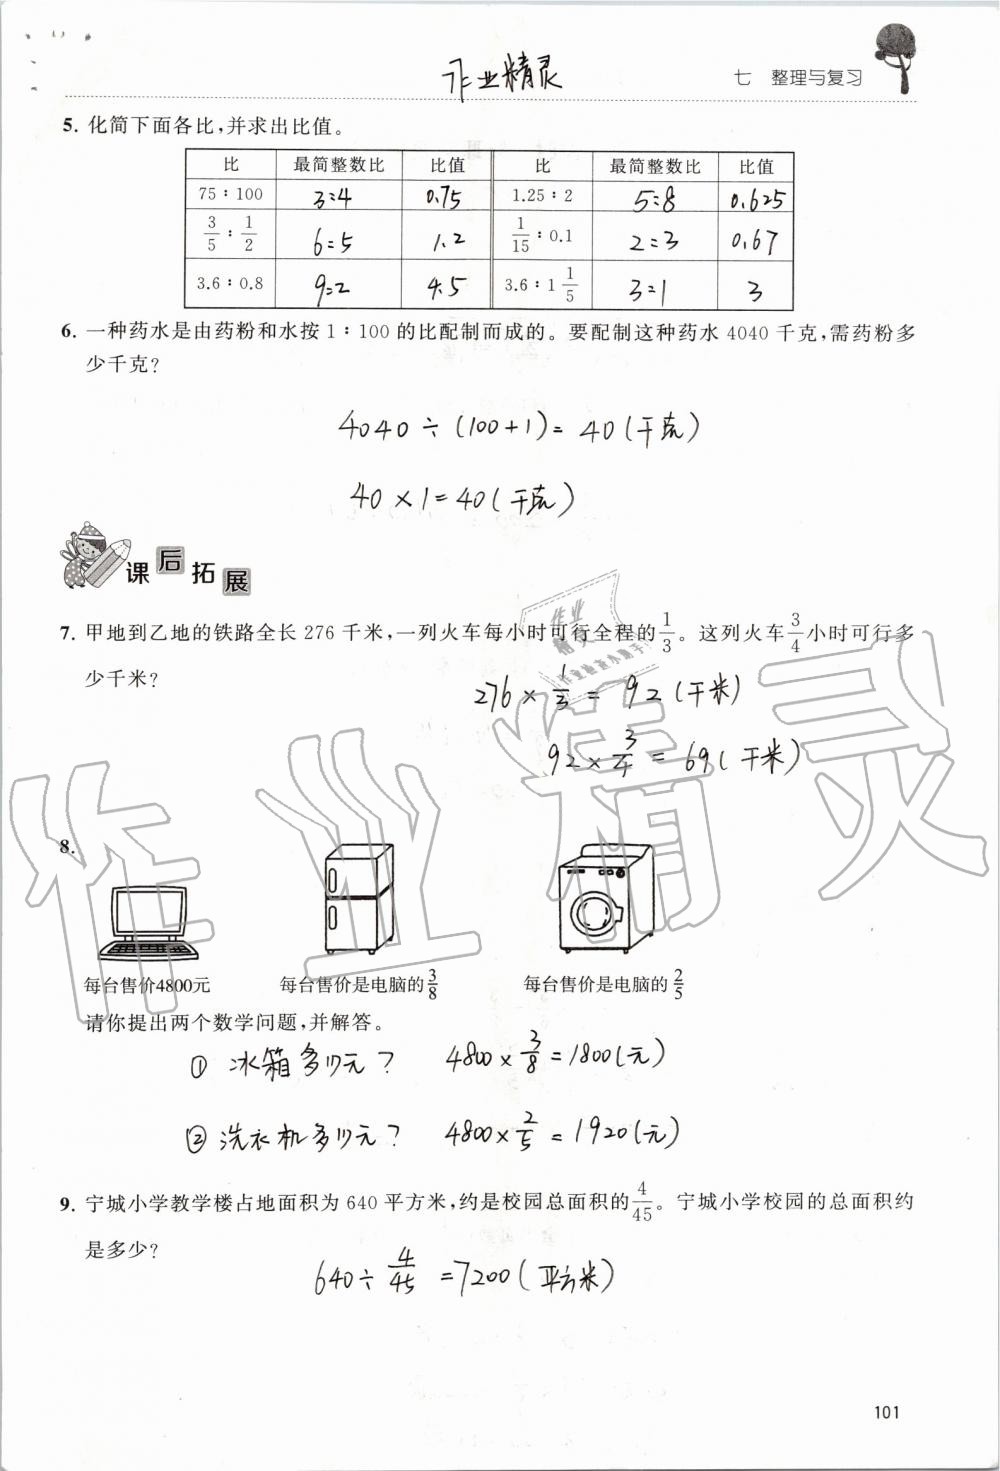 作业精灵
七 整理与复习
5. 化简下面各比,并求出比值。
比 最简整数比 比值 比 最简整数比 比值
75∶100 3:4 0.75 1.25∶2 5:8 0.625
3/5∶1/2 6:5 1.2 1/15∶0.1 2:3 0.67
3.6∶0.8 9:2 4.5 3.6∶1 1/5 3:1 3
6. 一种药水是由药粉和水按1∶100的比配制而成的。要配制这种药水4040千克,需药粉多
少千克?
4040÷(100+1)=40(千克)
40×1=40(千克)
课后拓展
7. 甲地到乙地的铁路全长276千米,一列火车每小时可行全程的1/3。这列火车3/4小时可行多
少千米?
276×1/3=92(千米)
92×3/4=69(千米)
作业精灵
8.
每台售价4800元 每台售价是电脑的3/8 每台售价是电脑的2/5
请你提出两个数学问题,并解答。
① 冰箱多少元? 4800×3/8=1800(元)
② 洗衣机多少元? 4800×2/5=1920(元)
9. 宁城小学教学楼占地面积为640平方米,约是校园总面积的4/45。宁城小学校园的总面积约
是多少?
640÷4/45=7200(平方米)
101